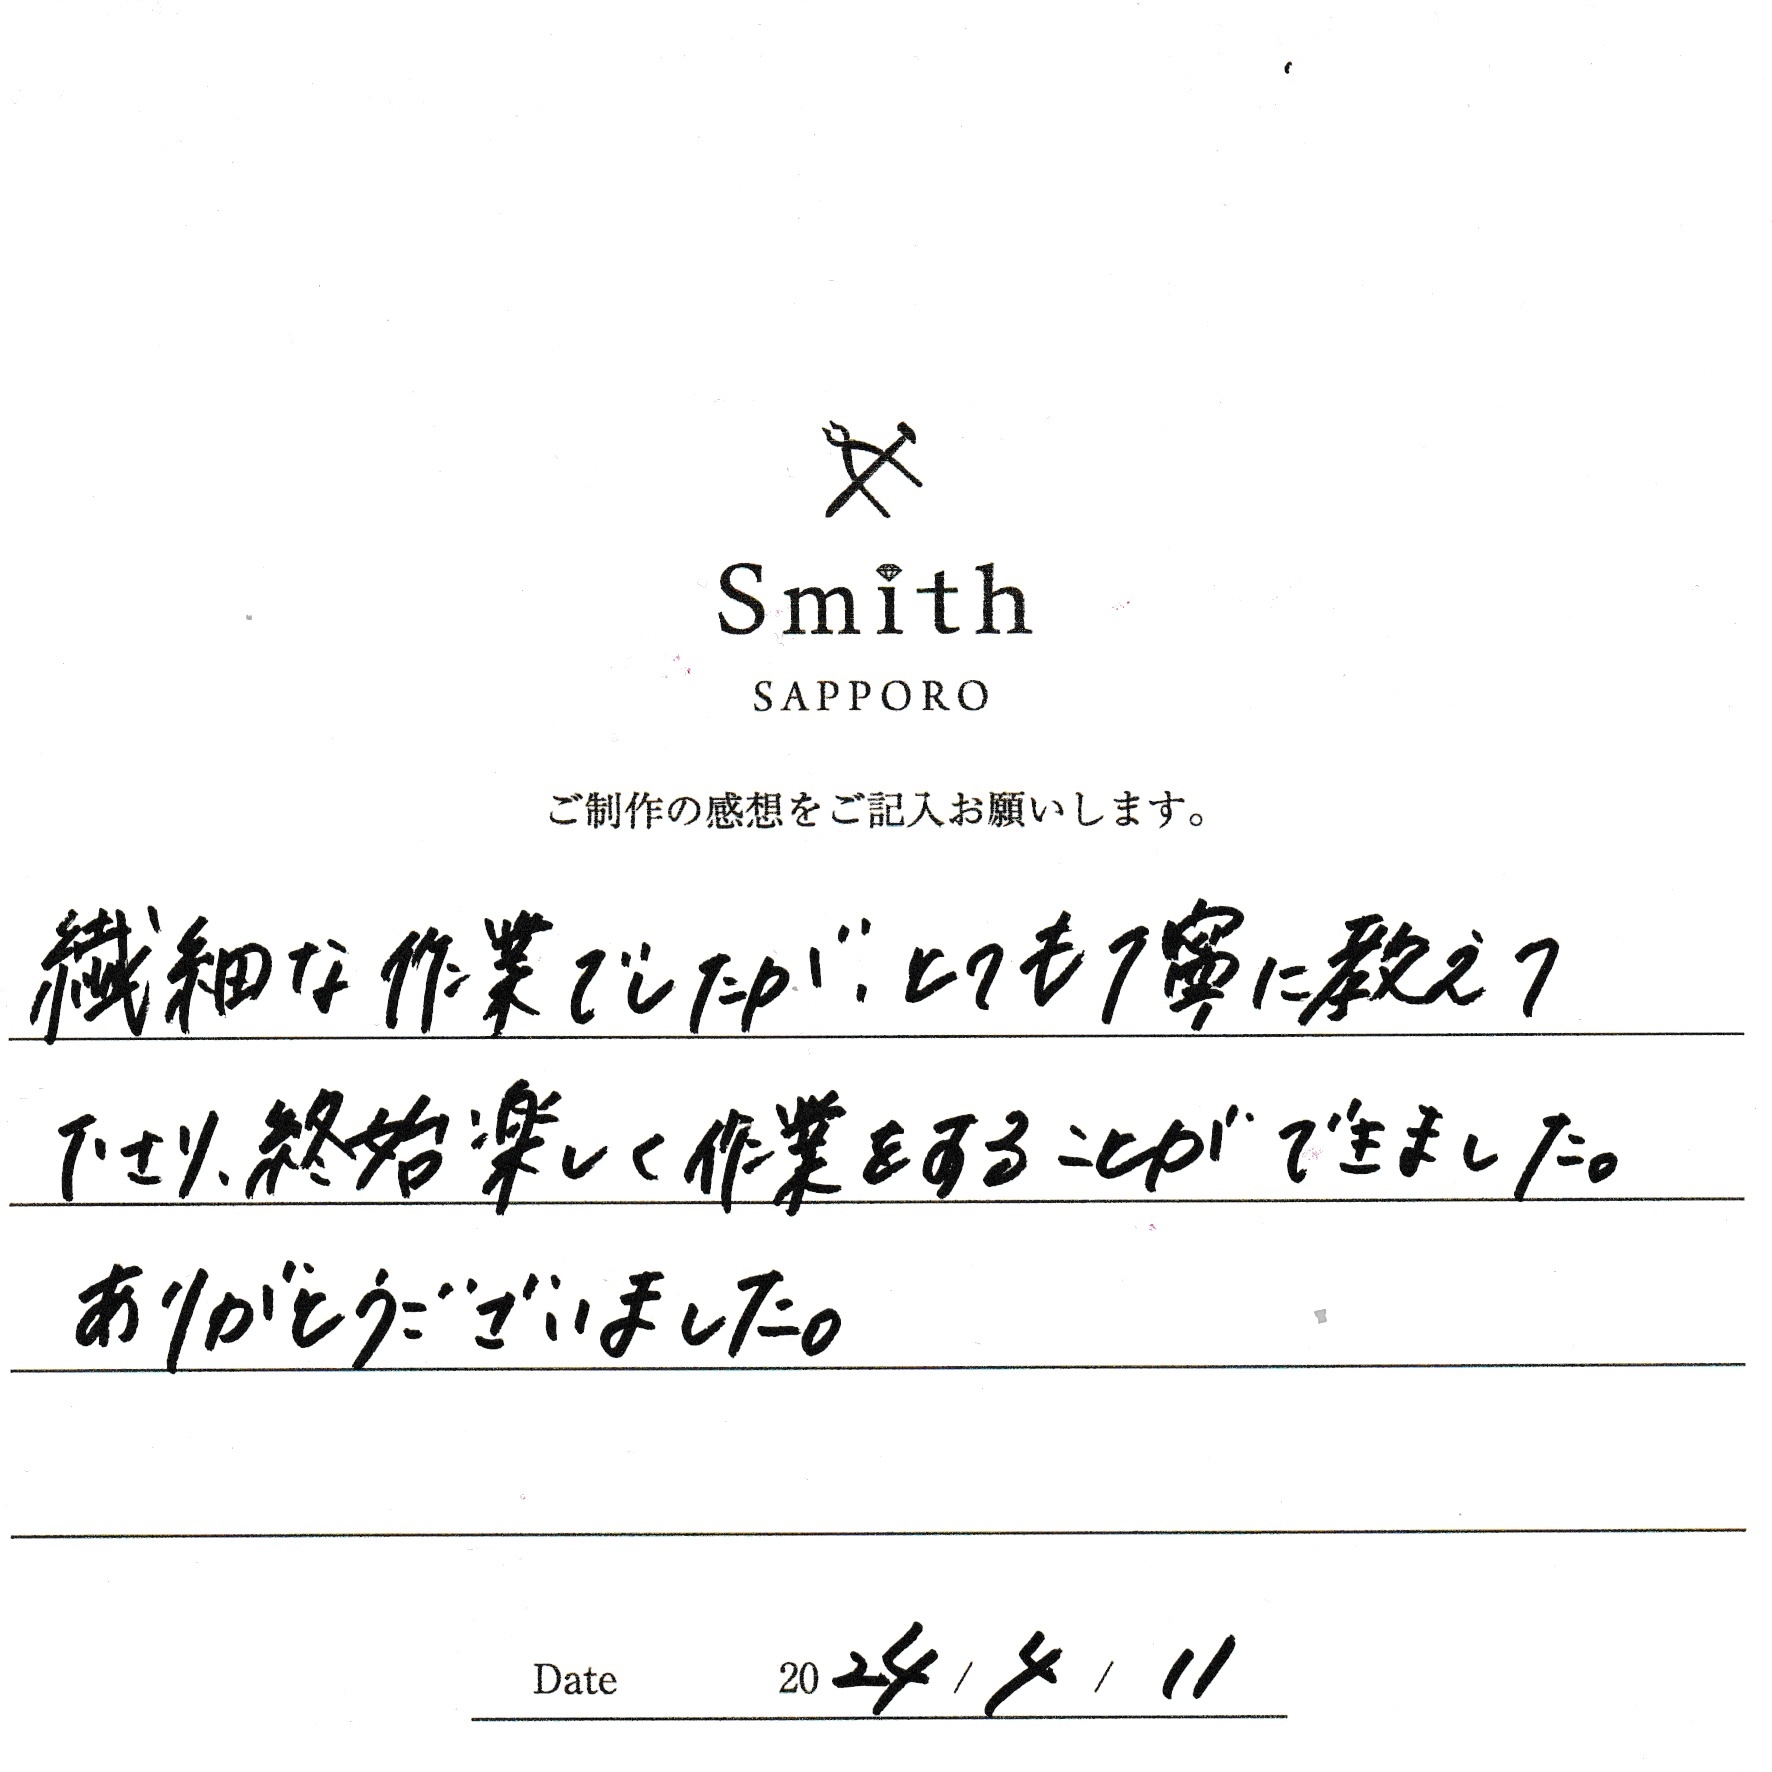 Smith
SAPPORO
ご制作の感想をご記入お願いします。
繊細な作業でしたが、とても丁寧に教えて
下さり、終始楽しく作業をすることができました。
ありがとうございました。
Date 2024 / 4 / 11